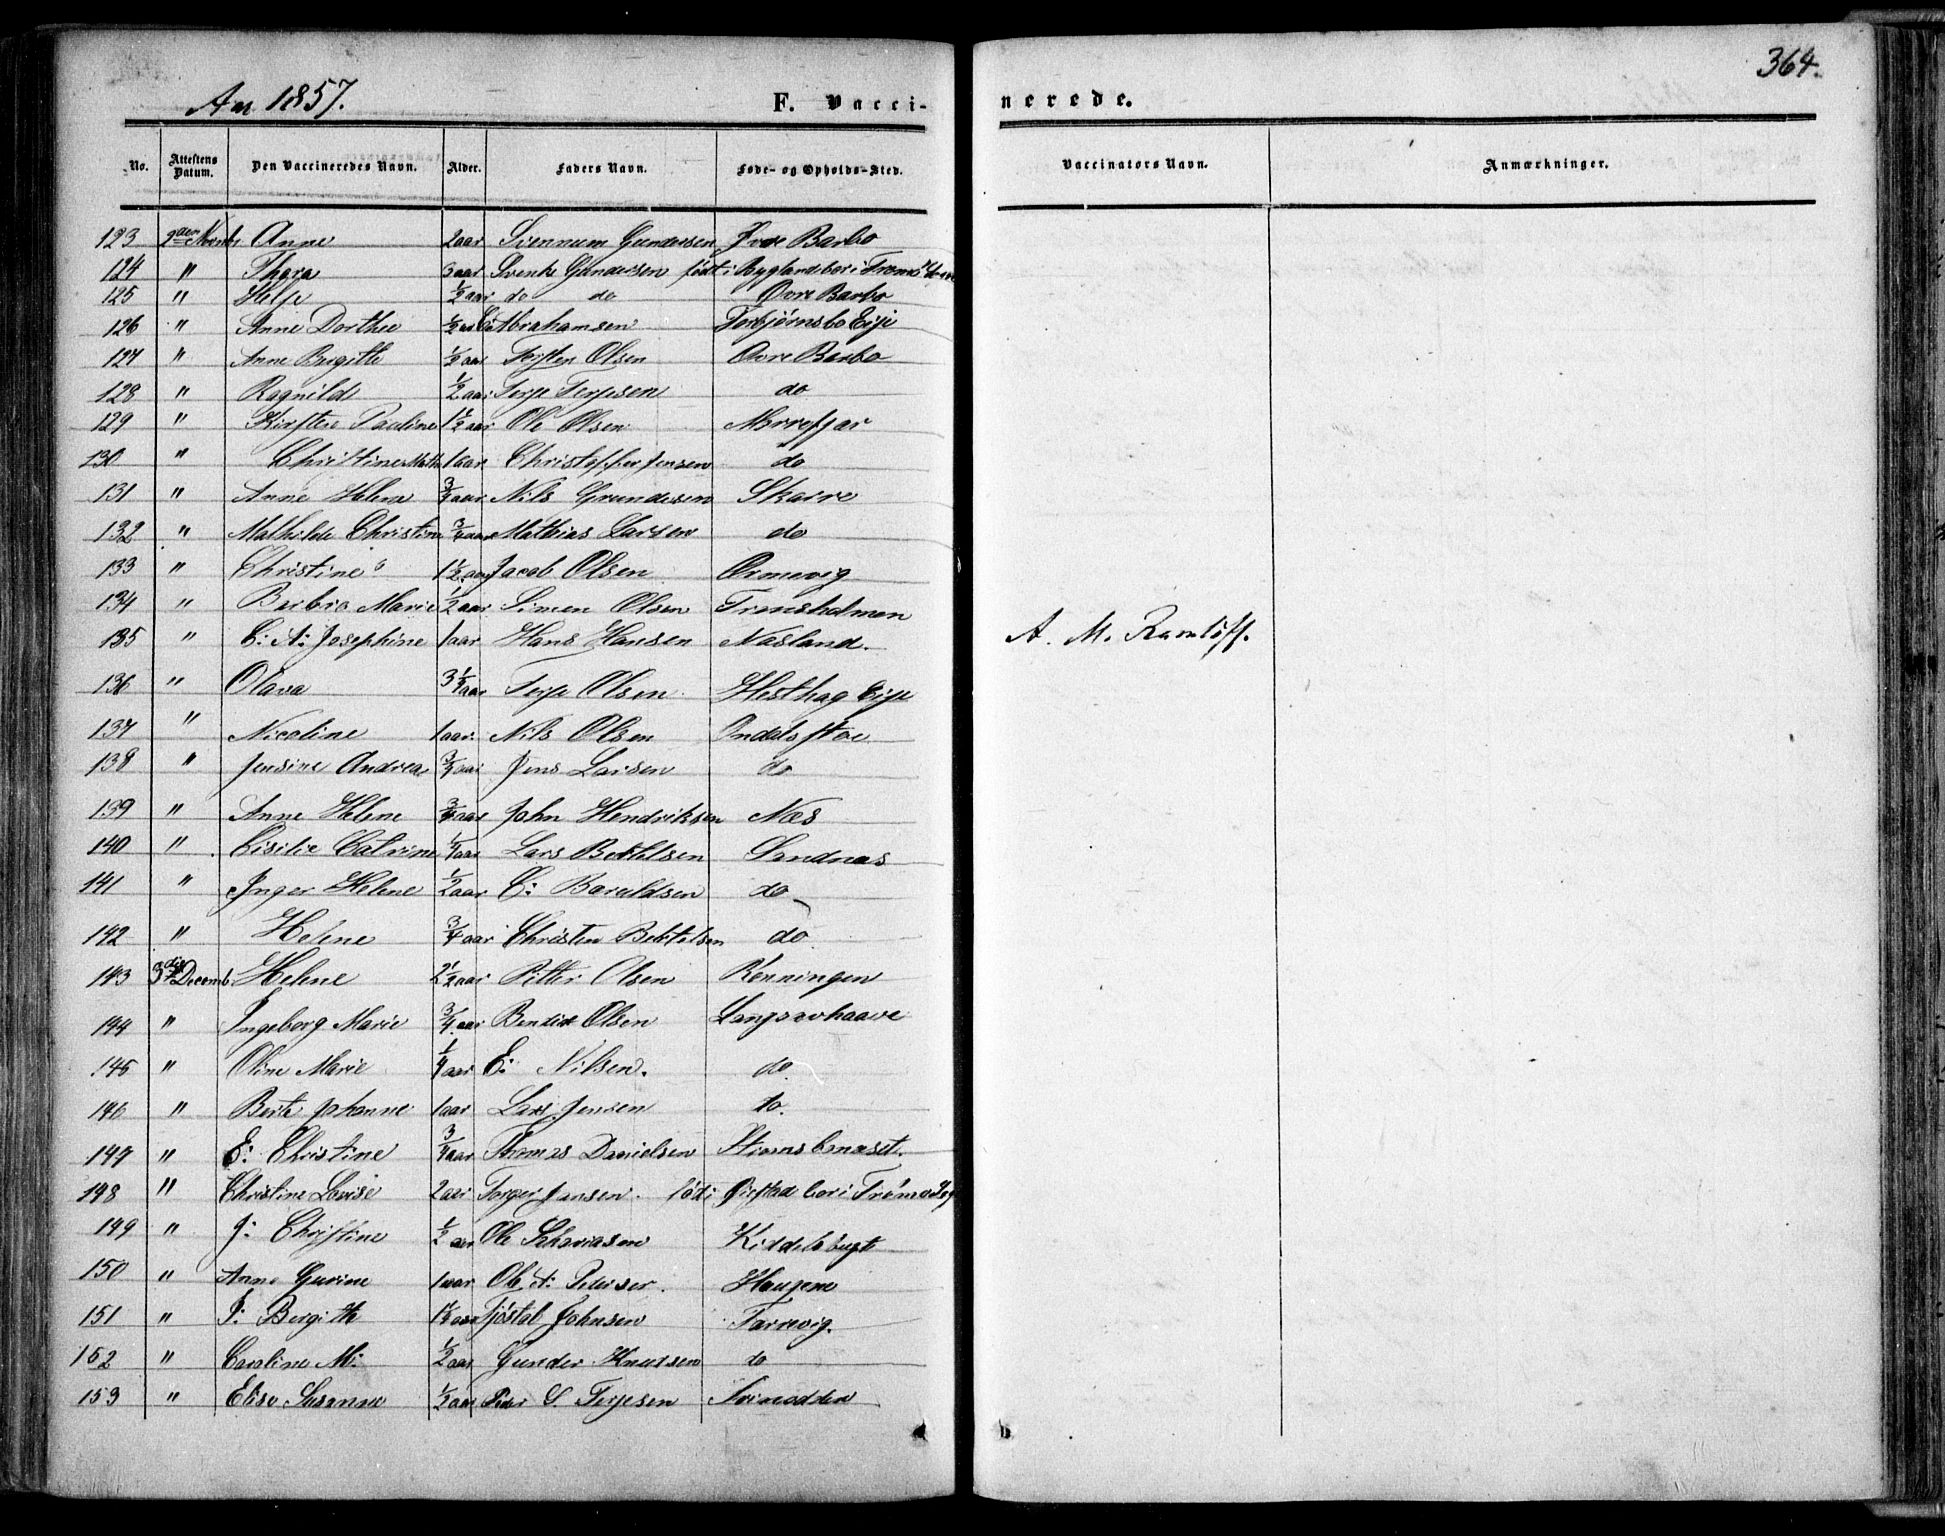 Aar 1857.
F. Vacci-
nerede.
364.
No. Attestens Datum. Den Vaccineredes Navn. Alder. Faders Navn. Føde- og Opholds-Sted. Vaccinators Navn. Anmærkninger.
123 Anne 2 aar Svennum Gundersen Øvre Barbo
124 " Thora 3 aar Svenke Gundersen født i Byglands bor i Tromø
125 " Helje ½ aar do do Øvre Barbo
126 " Anne Dorthee ½ aar Abrahamsen Torbjørnsbo Eije
127 " Anne Birgithe ½ aar Torsten Olsen Øvre Barbo
128 " Ragnild ½ aar Terje Terjesen do
129 " Kirsten Pauline 1½ aar Ole Olsen
130 " Christine Math 1 aar Christoffer Jensen do
131 " Anne Helene ¾ aar Nils Gundersen Skarre
132 " Mathilde Christine ¾ aar Mathias Larsen do
133 " Christine 1½ aar Jacob Olsen Ormevig
134 " Barbro Marie ½ aar Simen Olsen Tromsholmen
135 " C: A: Josephine 1 aar Hans Hansen Nasland. A. M. Ramløff.
136 " Olava 3¼ aar Terje Olsen Hesthag Eije
137 " Nicoline 1 aar. Nils Olsen
138 " Jensine Andrea ¾ aar Jens Larsen do
139 " Anne Helene ¾ aar John Hendriksen Næs
140 " Cisilie Catrine ¼ aar Lars Berthelsen Sandnæs
141 " Inger Helene ½ aar C: Baruldsen do
142 " Helene ¾ aar Christen Bertelsen do
143 3die Decemb. Helene 2½ aar Petter Olsen Rønningen
144 " Ingeborg Marie ¾ aar Bendix Olsen Langsævhaave
145 " Oline Marie ¼ aar E: Nilsen. do
146 " Berte Johanne 1 aar Lars Jensen do.
147 " E: Christine ¾ aar Thomas Danielsen Strømsbonæset.
148 " Christine Lovise 2 aar Torger Jensen. født i Øirstad bor i Tromø Sog
149 " J: Christine ½ aar Ole Kiddelsbugt
150 " Anne Gurine 1 aar Ole A: Pedersen. Haugene
151 " I: Bergith 1½ aar Tjøstel Johnsen Tarrevig.
152 " Caroline M: ½ aar Gunder Knutsen do
153 " Elise Susanne ½ aar Peder S. Terjesen Svinodden